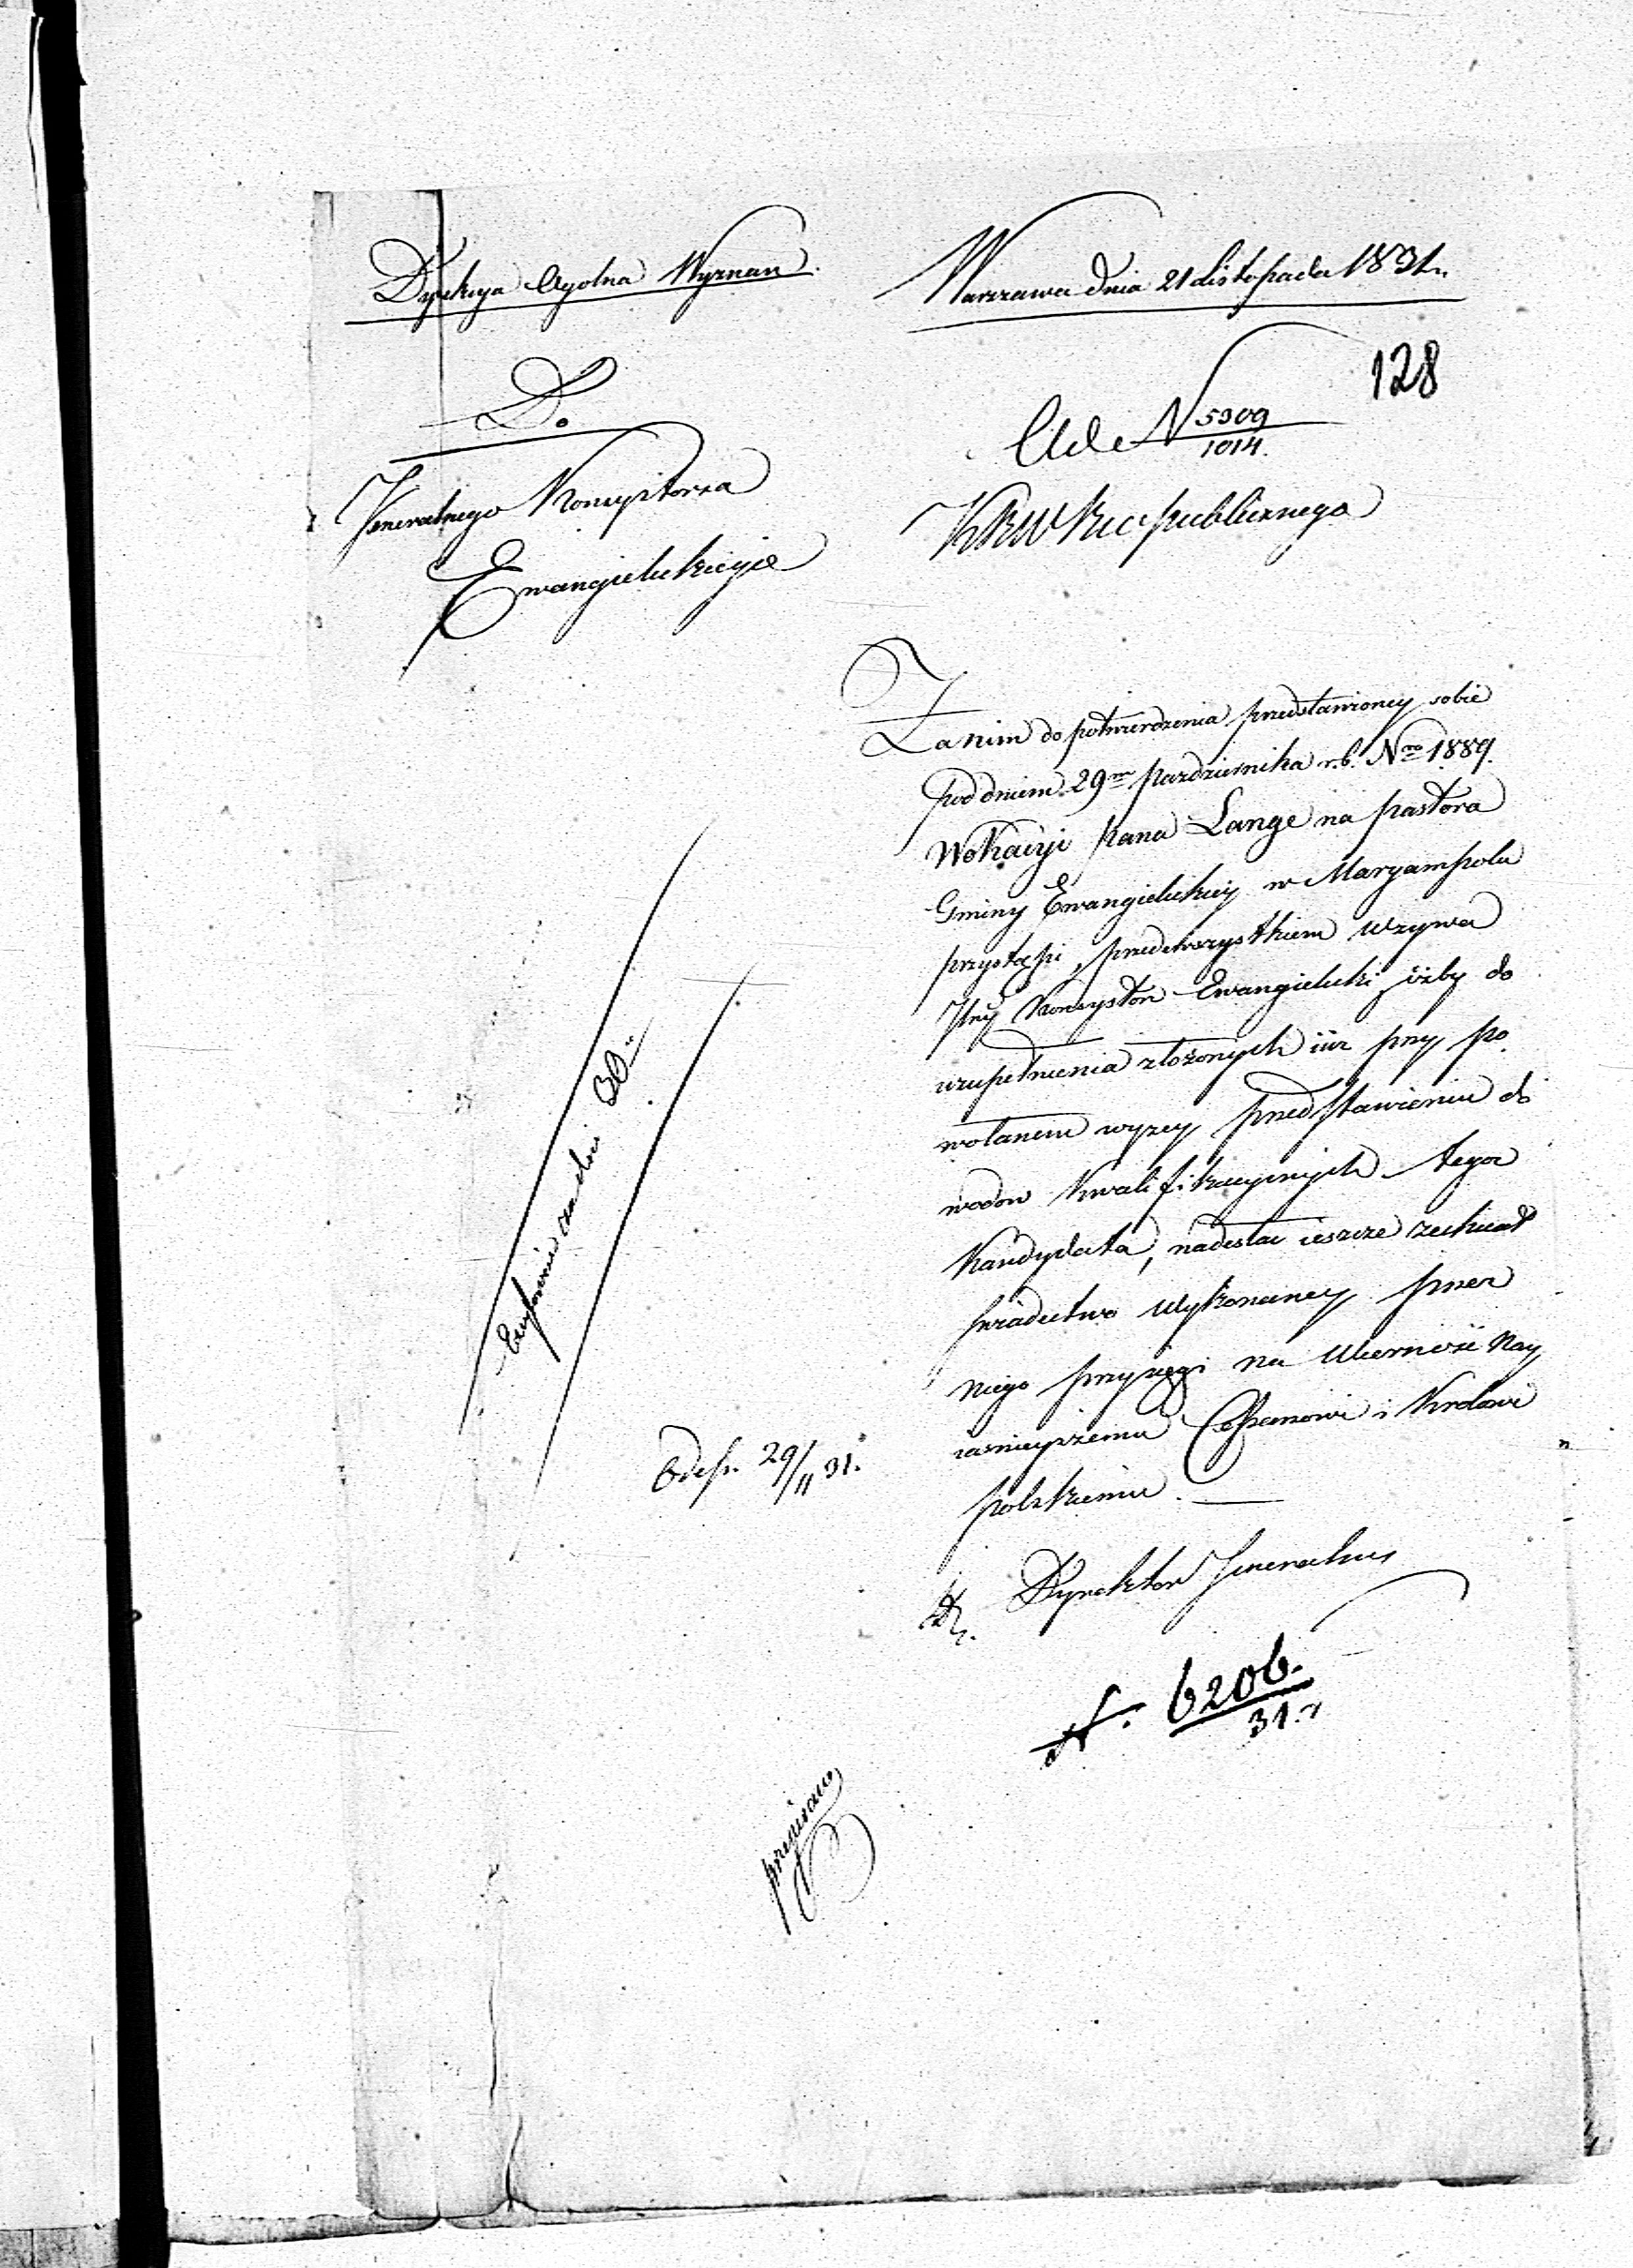 Dyrekcya Ogólna Wyznań.
Warszawa Dnia 21 Listopada 1831 r.
128
Do
Jeneralnego Konsystorza
Ewangielickiego
Ad N 5309
1014.
KRW Publicznego
Zanim do potwierdzenia przedstawioney sobie
pod dniem 29m pazdziernika r.b. Nro 1889.
Wokacyi pana Lange na pastora
Gminy Ewangielickiey w Maryampolu
przystąpi, przedewszystkiem wzywa
Jlny Konsystorz Ewangielicki iżby do
uzupełnienia złożonych iuż przy po
wołanem wyzey przedstawieniu do
wodow kwalifikacyinych tego
Kandydata, nadesłać ieszcze zechciał
swiadectwo wykonaney przez
niego przysięgi na wiernośc Nay
iasnieyszemu Cesarzowi i Krolowi
polskiemu.
Dyrektor Jeneralny
Exp. 29/11 31.
N. 6206.
31. r
przepisano